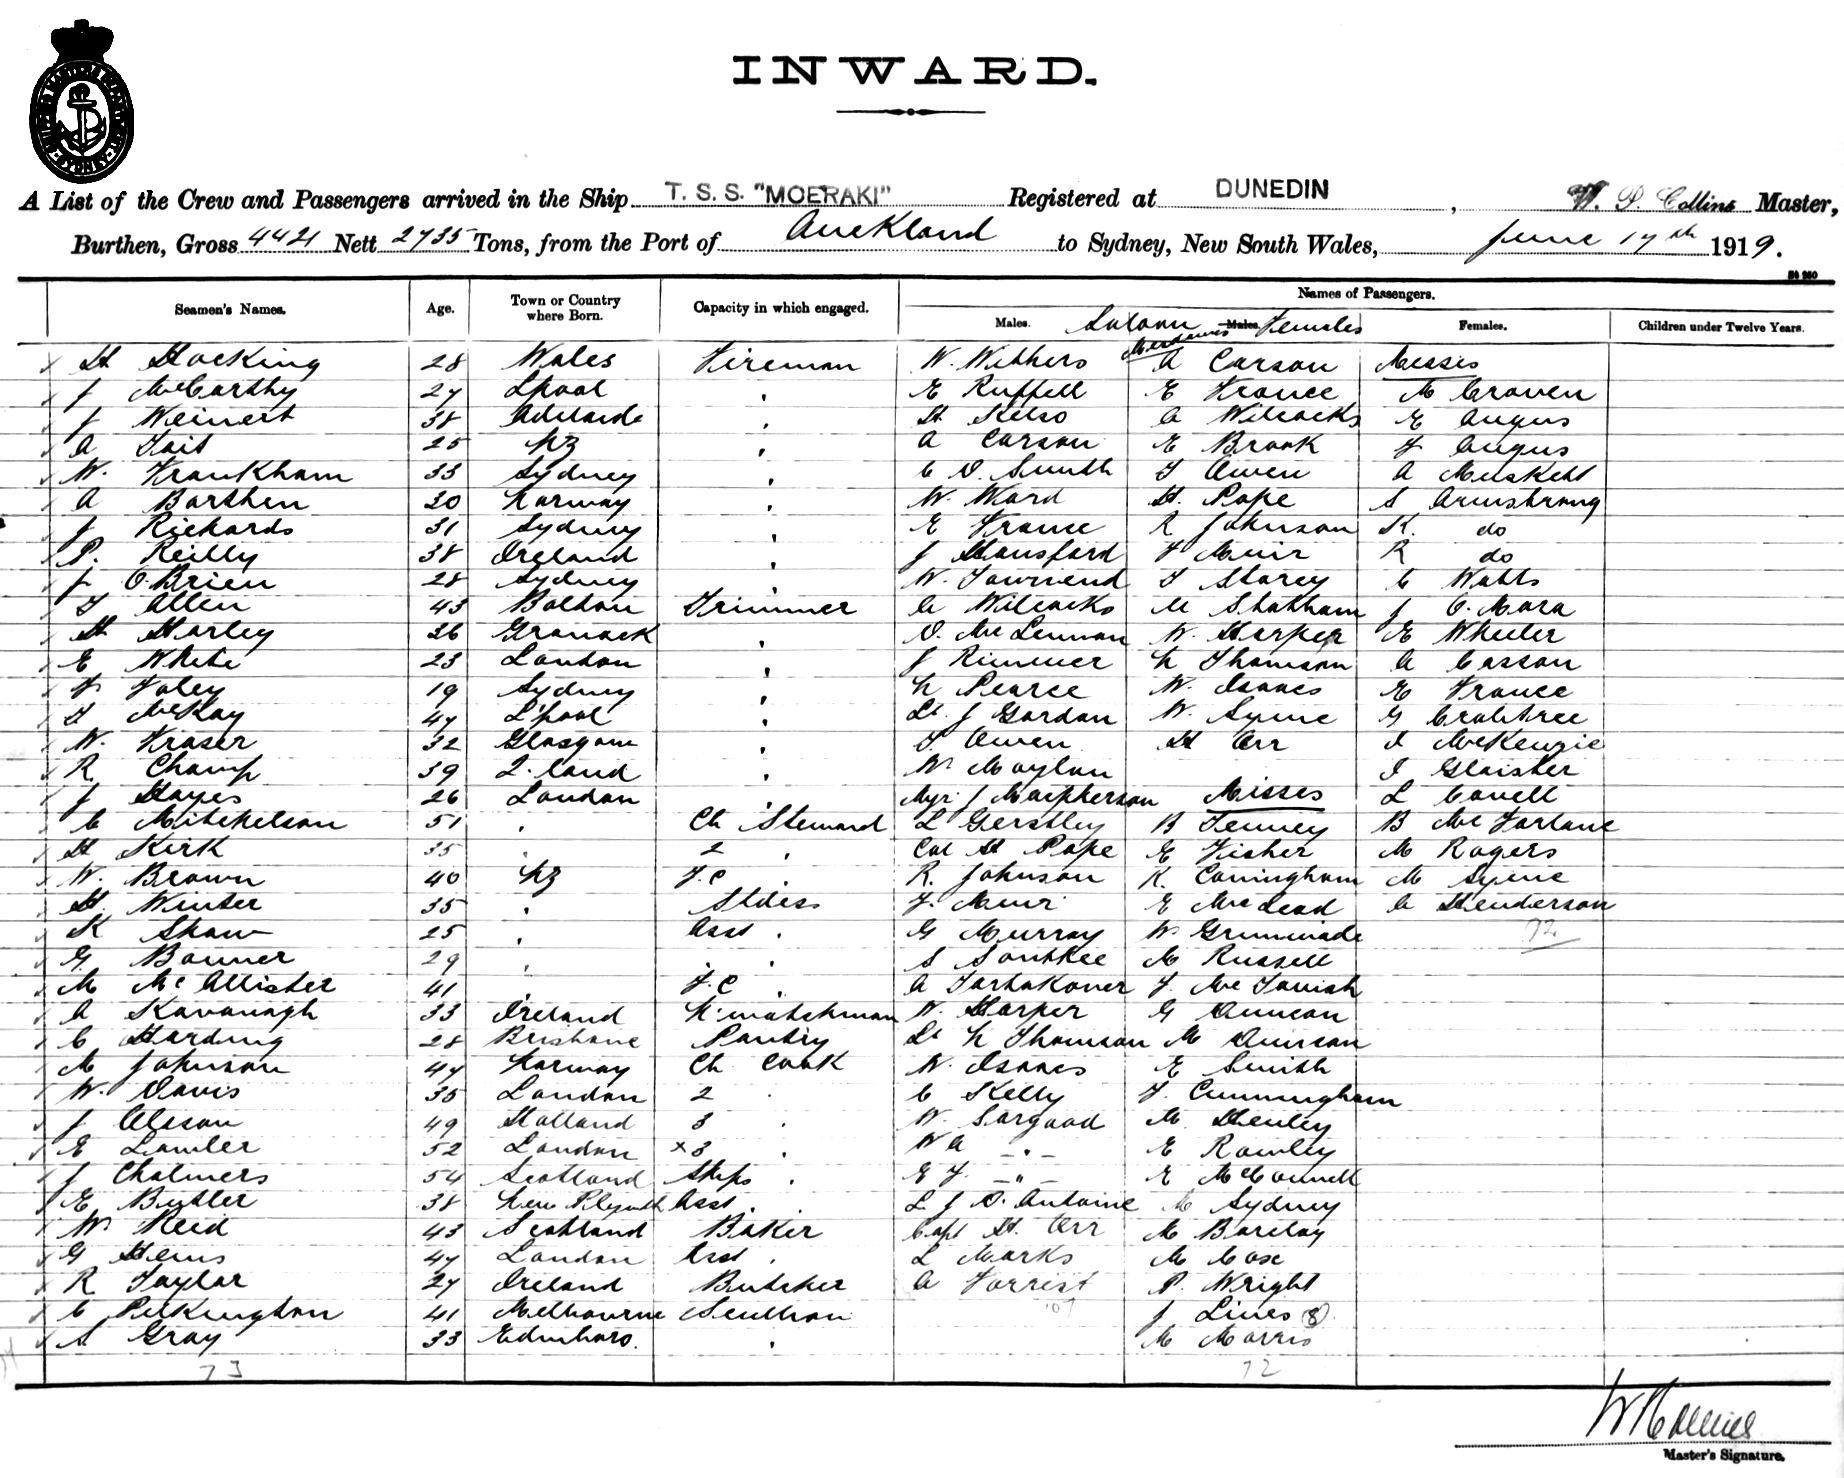 INWARD.
A List of the Crew and Passengers arrived in the Ship T. S. S. "MOERAKI" Registered at DUNEDIN, W. P. Collins Master,
Burthen, Gross 4421 Nett 2735 Tons, from the Port of Auckland to Sydney, New South Wales, June 17th 1919.
Seamen's Names. Age. Town or Country where Born. Capacity in which engaged. Names of Passengers.
Males. Saloon Males. Females Females. Children under Twelve Years.
Mesdames
H Hocking 28 Wales Fireman W. Withers A Carson Misses
J McCarthy 27 Lpool " E Ruffell E France M Craven
J Weinert 38 Adelaide " H Kelso A Wilcocks E Angus
A Tait 25 NZ " A Carson E Brook F Angus
W. Frankham 33 Sydney " C D. Smith T Owen A Muskett
A Barthen 30 Norway " W. Ward H. Pope S Armstrong
J Rickards 31 Sydney " E France R Johnson K. do
P. Reilly 38 Ireland " J Hansford F Muir R do
J O'Brien 28 Sydney " W. Townend T Storey C Watts
T Allen 43 Bolton Trimmer A Wilcocks M Statham J O'Mara
H Harley 26 Granock " D. McLennan W. Harper E Wheeler
E White 23 London " J Rimmer N Thomson A Casson
F Foley 19 Sydney " N Pearce W. Isaacs E France
T McKay 47 L'pool " Lt. J Gordon W. Syme G Crabtree
W. Fraser 32 Glasgow " T Owen H Orr I McKenzie
R Champ 39 Q. land " W Moylan I Glaister
J Hayes 26 London " Myr. J Macpherson Misses L Cavell
C Mitchelson 51 " Ch Steward L Gershley B Tenney B McFarlane
H Kirk 35 " 2 " Col H Pope E Fisher M Rogers
W. Brown 40 NZ F.C " R. Johnson K. Coningham M Syme
H. Winter 35 " Stdess F. Muir E McLeod C Henderson
K Shaw 25 " Asst " G Murray W Grimwade 72
G. Bonner 29 " " S Southee M Russell
M McAllister 41 " F.C " A Tartakover F. McTavish
A Kavanagh 33 Ireland N. watchman W. Harper G Duncan
C Harding 28 Brisbane Pantry Lt N Thomson M Quirson
M Johnson 47 Norway Ch Cook W. Isaacs E Smith
W. Davis 35 London 2 " C Kelly F. Cunningham
J Olsson 49 Holland 3 " W. Sargood M. Henley
E Lawler 52 London x3 " W A - " - E Rowley
J Chalmers 54 Scotland Ships " E F. - " - E McConnell
E Butler 38 New Plymth Asst " L J D. Antoine M Sydney
W Reid 43 Scotland Baker Capt H. Orr M Barclay
G Hems 47 London Asst " L Marks M Cox
R Taylor 27 Ireland Butcher A Forrest P. Wright
C Pilkington 41 Melbourne Scullion J Lines (8)
S Gray 33 Edinboro. " M Morris
73 72
W P Collins
Master's Signature.